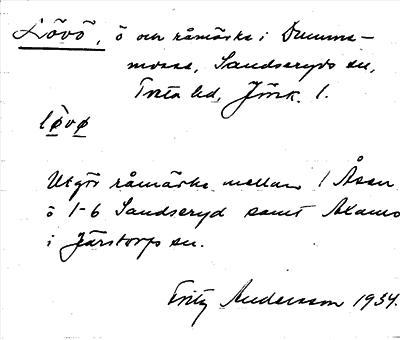 Lövö, ö och råmärke i Dumme-
mosse, Sandseryds sn,
Tveta hd, Jönk. l.
lø̀vø
Utgör råmärke mellan 1 Åsen
o 1-6 Sandseryd samt Axamo
i Järstorps sn.
Fritz Andersson 1934.